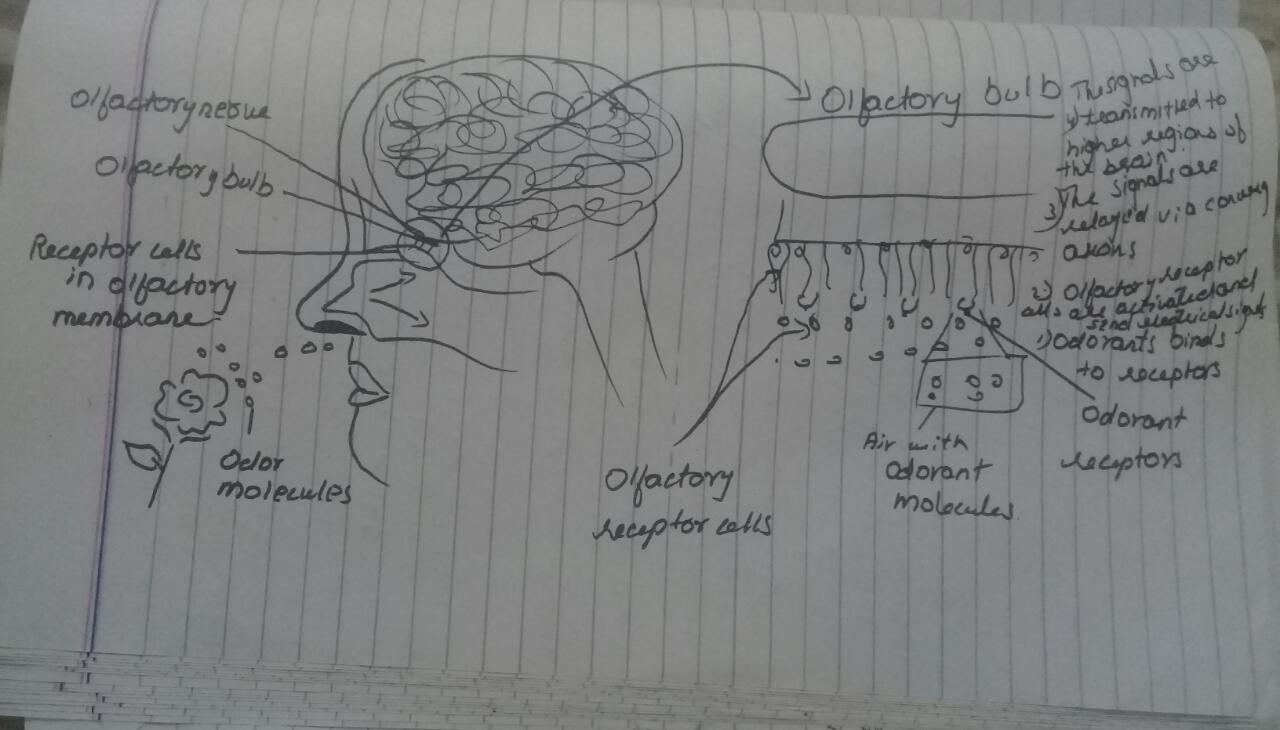 Olfactory nerve
Olfactory bulb
Receptor cells
in olfactory
membrane
Odor
molecules
Olfactory bulb
The signals are
4) transmitted to
higher regions of
the brain.
3) The signals are
relayed via converg
axons
2) Olfactory receptor
cells are activated and
send electrical signals
1) Odorants binds
to receptors
Odorant
receptors
Air with
Odorant
molecules.
Olfactory
receptor cells